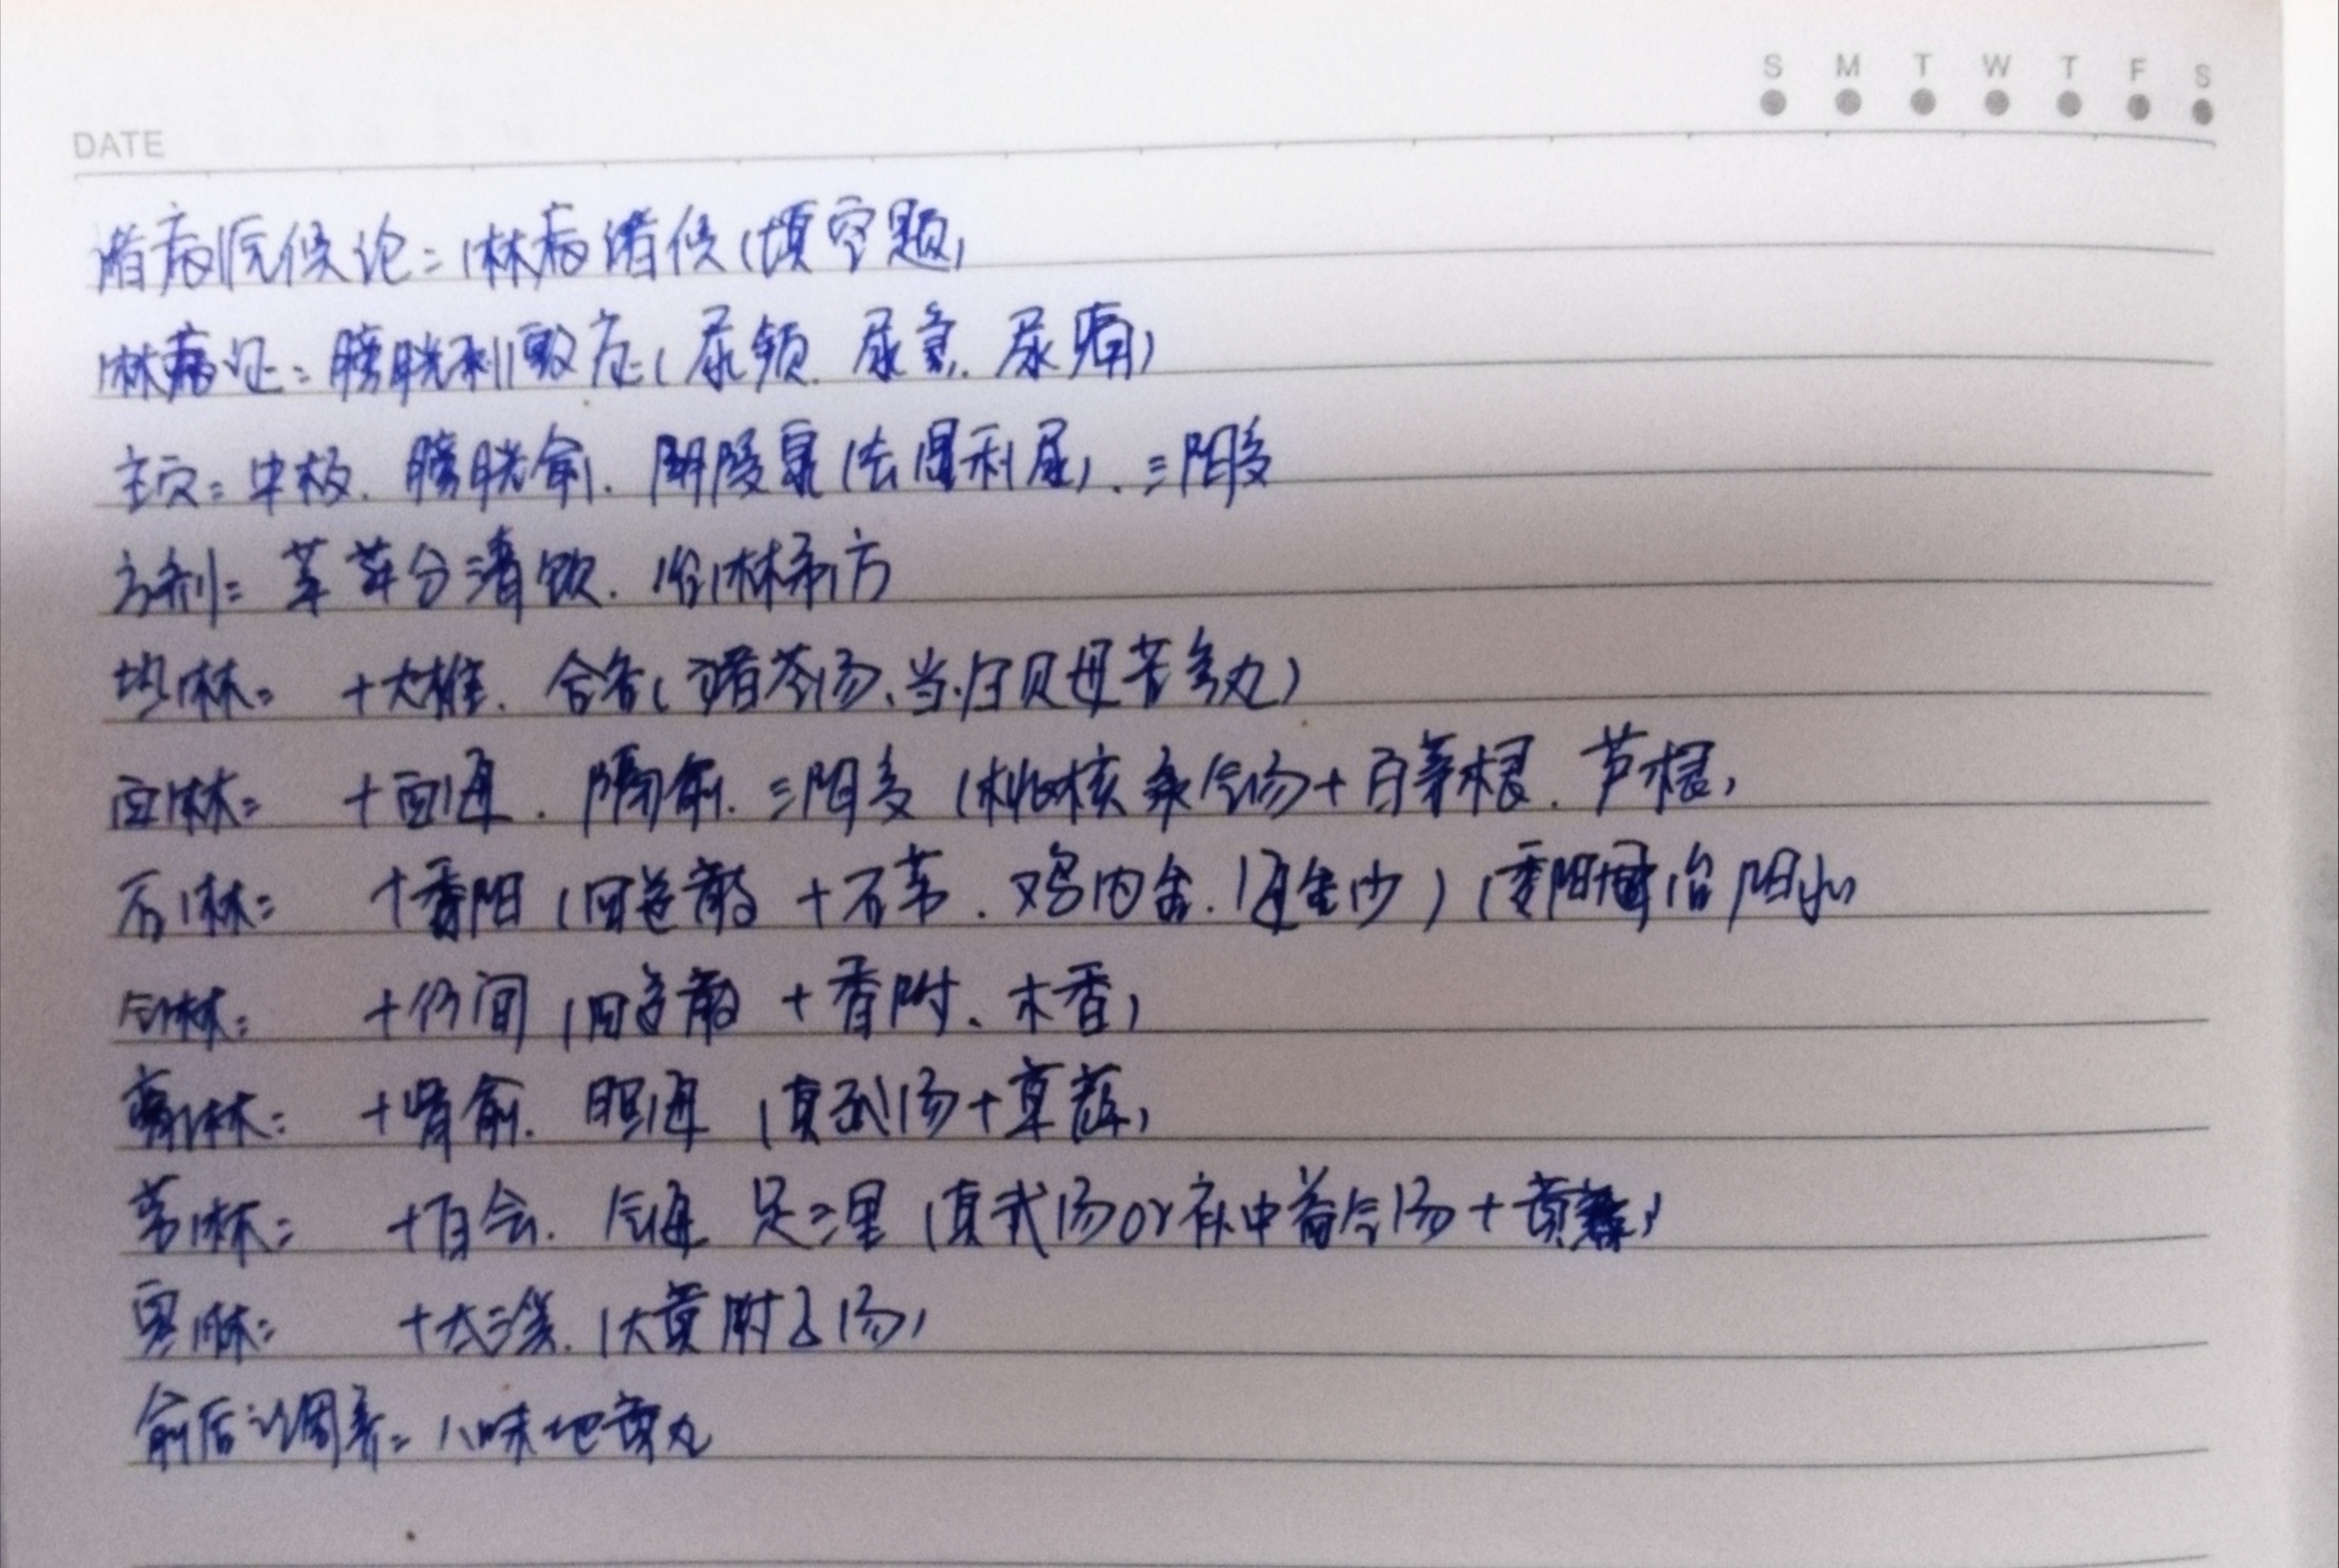 S M T W T F S
DATE
诸病源候论：淋病诸候（填空题）
淋病证：膀胱刺激症（尿频、尿急、尿痛）
主穴：中极、膀胱俞、阴陵泉（去湿利尿）、三阴交
方剂：萆薢分清饮、治淋
热淋： +大椎、合谷（猪苓汤、当归贝母苦参丸）
血淋： +血海、膈俞、三阴交（桃核承气汤+白茅根、芦根）
石淋： +委阳（四逆散+石苇、鸡内金、海金沙）（委阳
气淋： +行间（四逆散+香附、木香）
膏淋： +肾俞、照海（真武汤+草薢）
劳淋： +百会、气海、足三里（真武汤or补中益气汤+黄
寒淋： +太溪、（大黄附子汤）
八味地黄丸